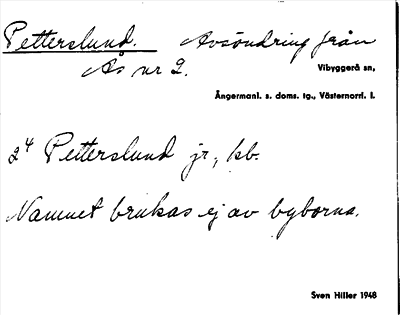 Petterslund. Avsöndring från
Ås nr 2. Vibyggerå sn,
Ångermanl. s. doms. tg., Västernorrl. l.
2⁴ Petterslund jr, kb.
Namnet brukas ej av byborna.
Sven Hiller 1948